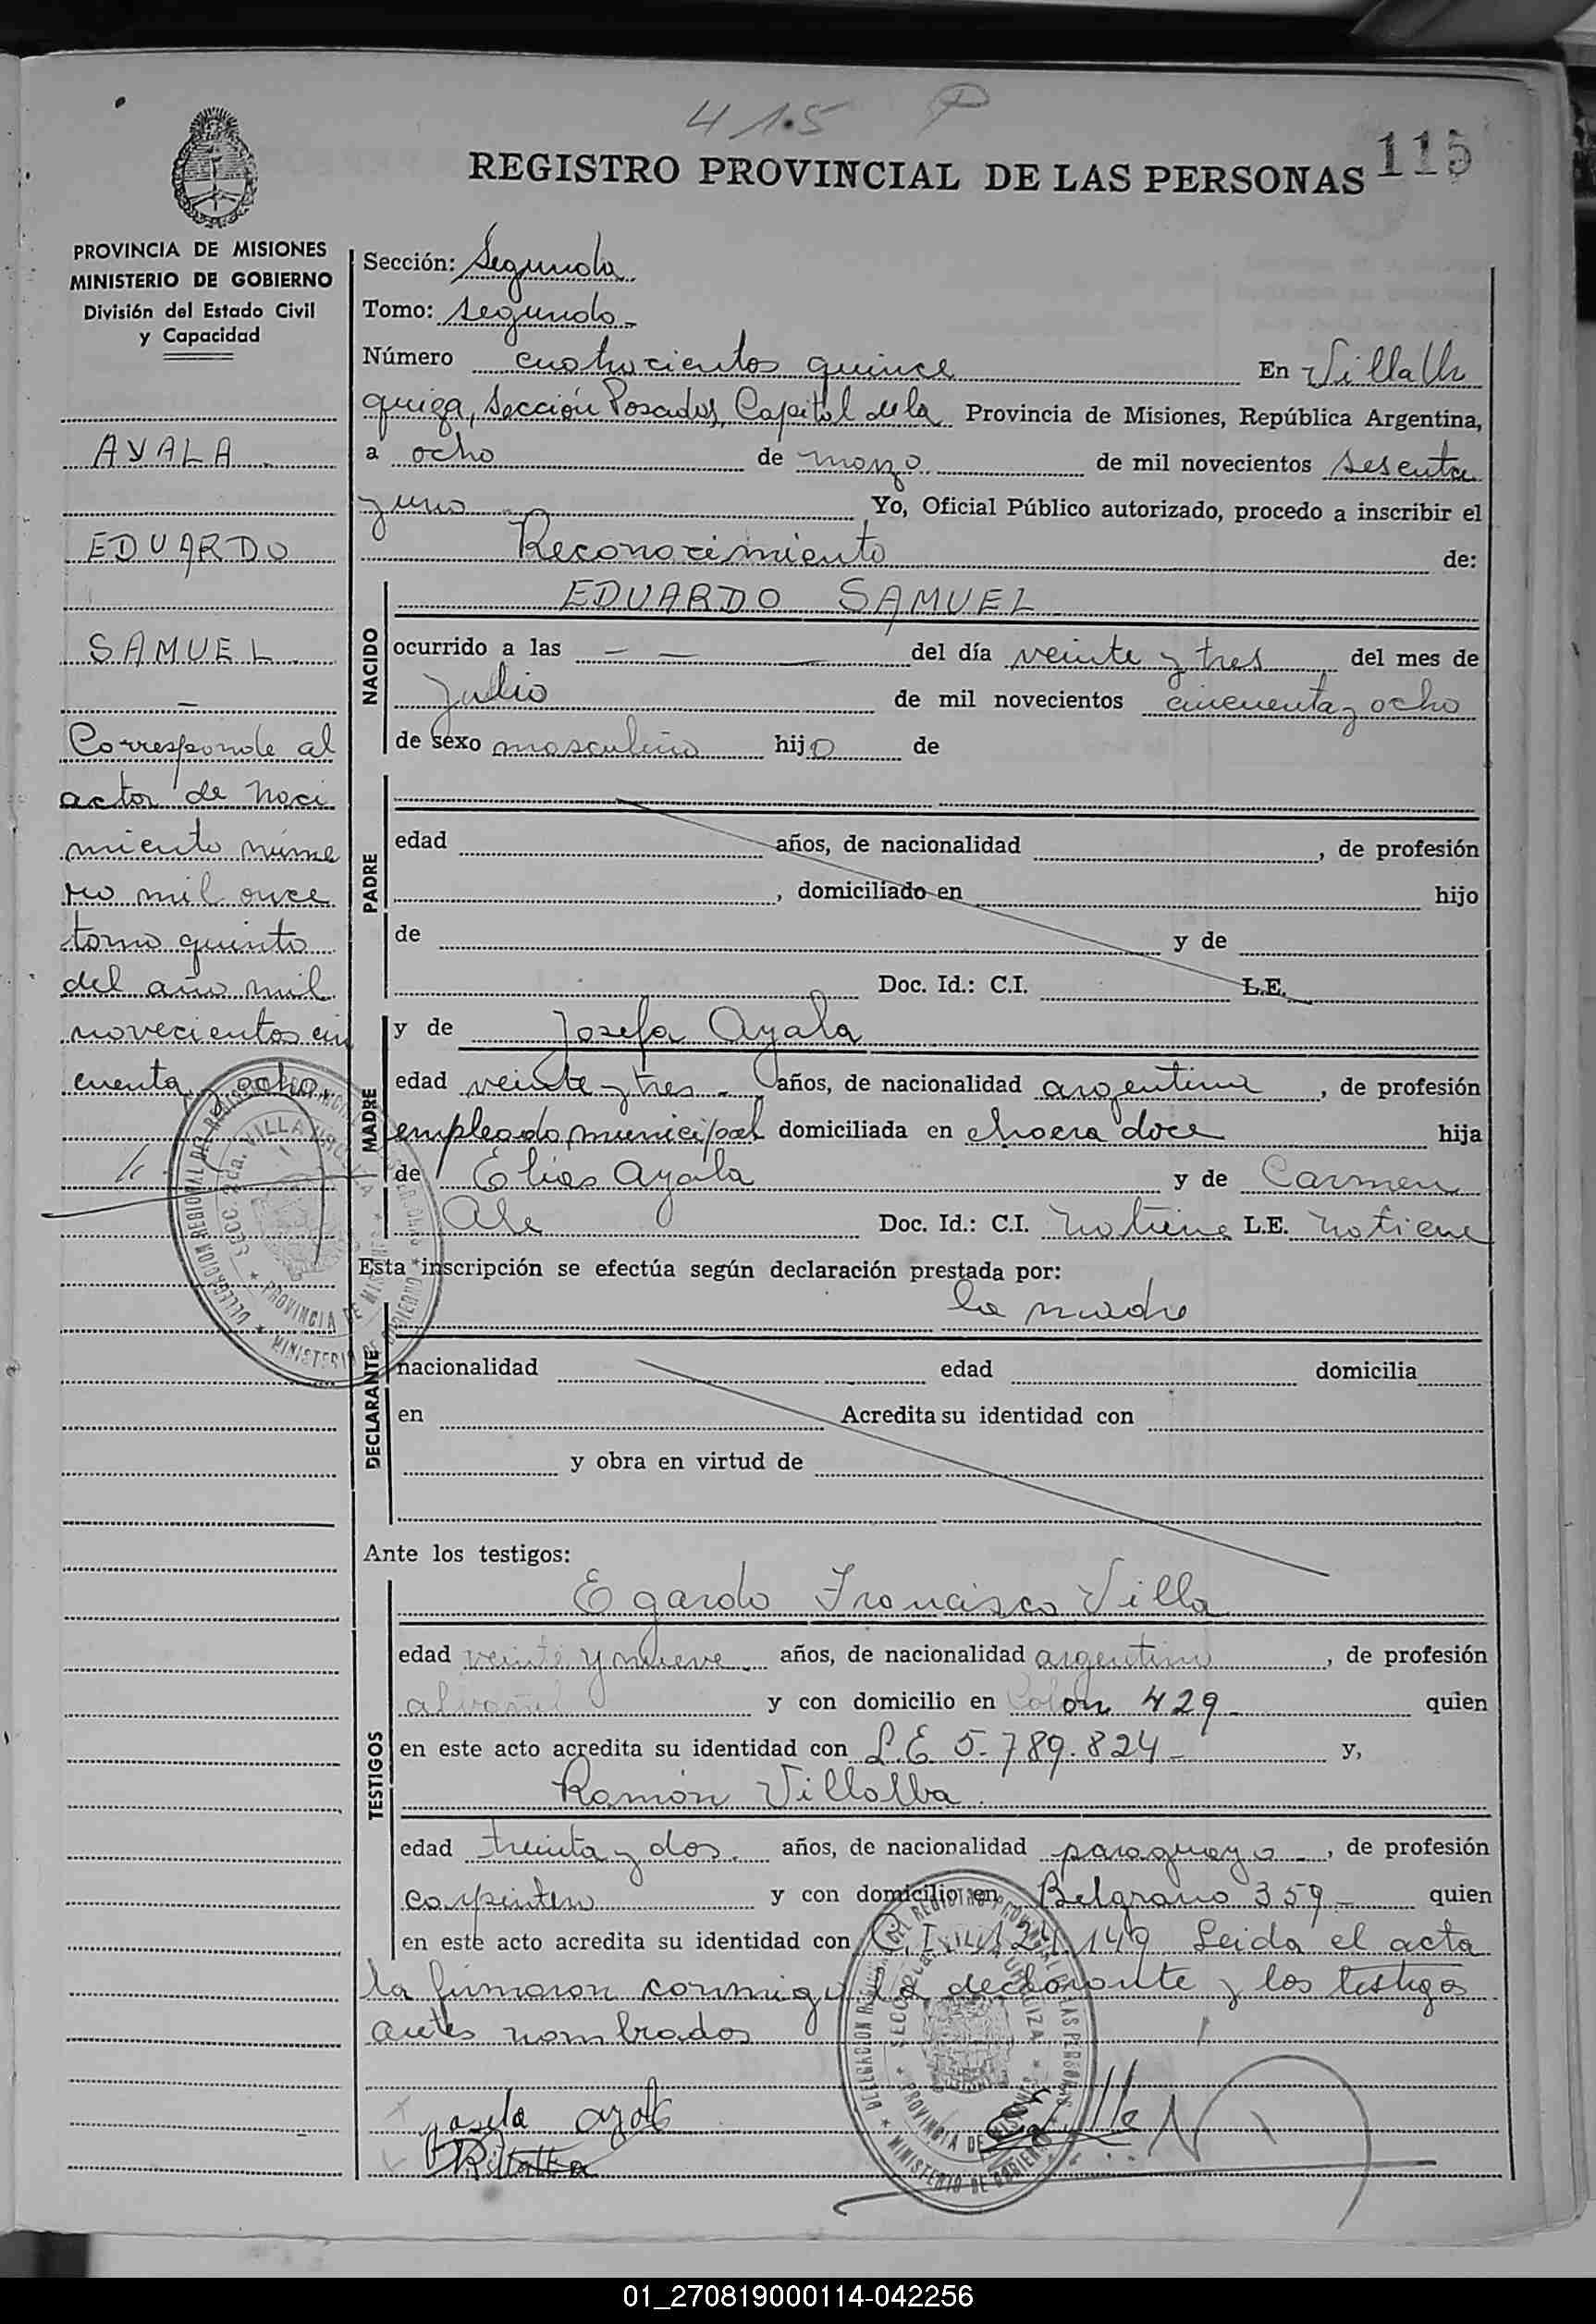 415 P
REGISTRO PROVINCIAL DE LAS PERSONAS 115
PROVINCIA DE MISIONES
MINISTERIO DE GOBIERNO
División del Estado Civil
y Capacidad
AYALA
EDUARDO
SAMUEL
Corresponde al
actor de naci
miento núme
ro mil once
tomo quinto
del año mil
novecientos cin
cuenta y ocho
Sección: Segunda
Tomo: Segundo
Número cuatrocientos quince En Villa Ur
quiza, Sección Posadas, Capital de la Provincia de Misiones, República Argentina,
a ocho de marzo de mil novecientos sesenta
y uno Yo, Oficial Público autorizado, procedo a inscribir el
Reconocimiento de:
NACIDO
EDUARDO SAMUEL
ocurrido a las — — — del día veinte y tres del mes de
Julio de mil novecientos cincuenta y ocho
de sexo masculino hijo de
PADRE
edad años, de nacionalidad , de profesión
, domiciliado en hijo
de y de
Doc. Id.: C.I. L.E.
MADRE
y de Josefa Ayala
edad veinte y tres años, de nacionalidad argentina, de profesión
empleada municipal domiciliada en chacra doce hija
de Elias Ayala y de Carmen
Doc. Id.: C.I. no tiene L.E. no tiene
Esta inscripción se efectúa según declaración prestada por:
la madre
DECLARANTE
nacionalidad edad domicilia
en Acredita su identidad con
y obra en virtud de
Ante los testigos:
TESTIGOS
Egardo Francisco Villa
edad veinte y nueve años, de nacionalidad argentino, de profesión
y con domicilio en Colon 429 quien
en este acto acredita su identidad con L.E 5.789.824 y,
Ramón Villalba
edad treinta y dos años, de nacionalidad paraguayo, de profesión
carpintero y con domicilio en Belgrano 359 quien
en este acto acredita su identidad con C.I. Leida el acta
la firmaron conmigo la declarante y los testigos
antes nombrados
DELEGACION REGIONAL DEL REGISTRO PROVINCIAL DE LAS PERSONAS
SECC. 2da. VILLA URQUIZA
PROVINCIA DE MISIONES
MINISTERIO DE GOBIERNO
01_270819000114-042256